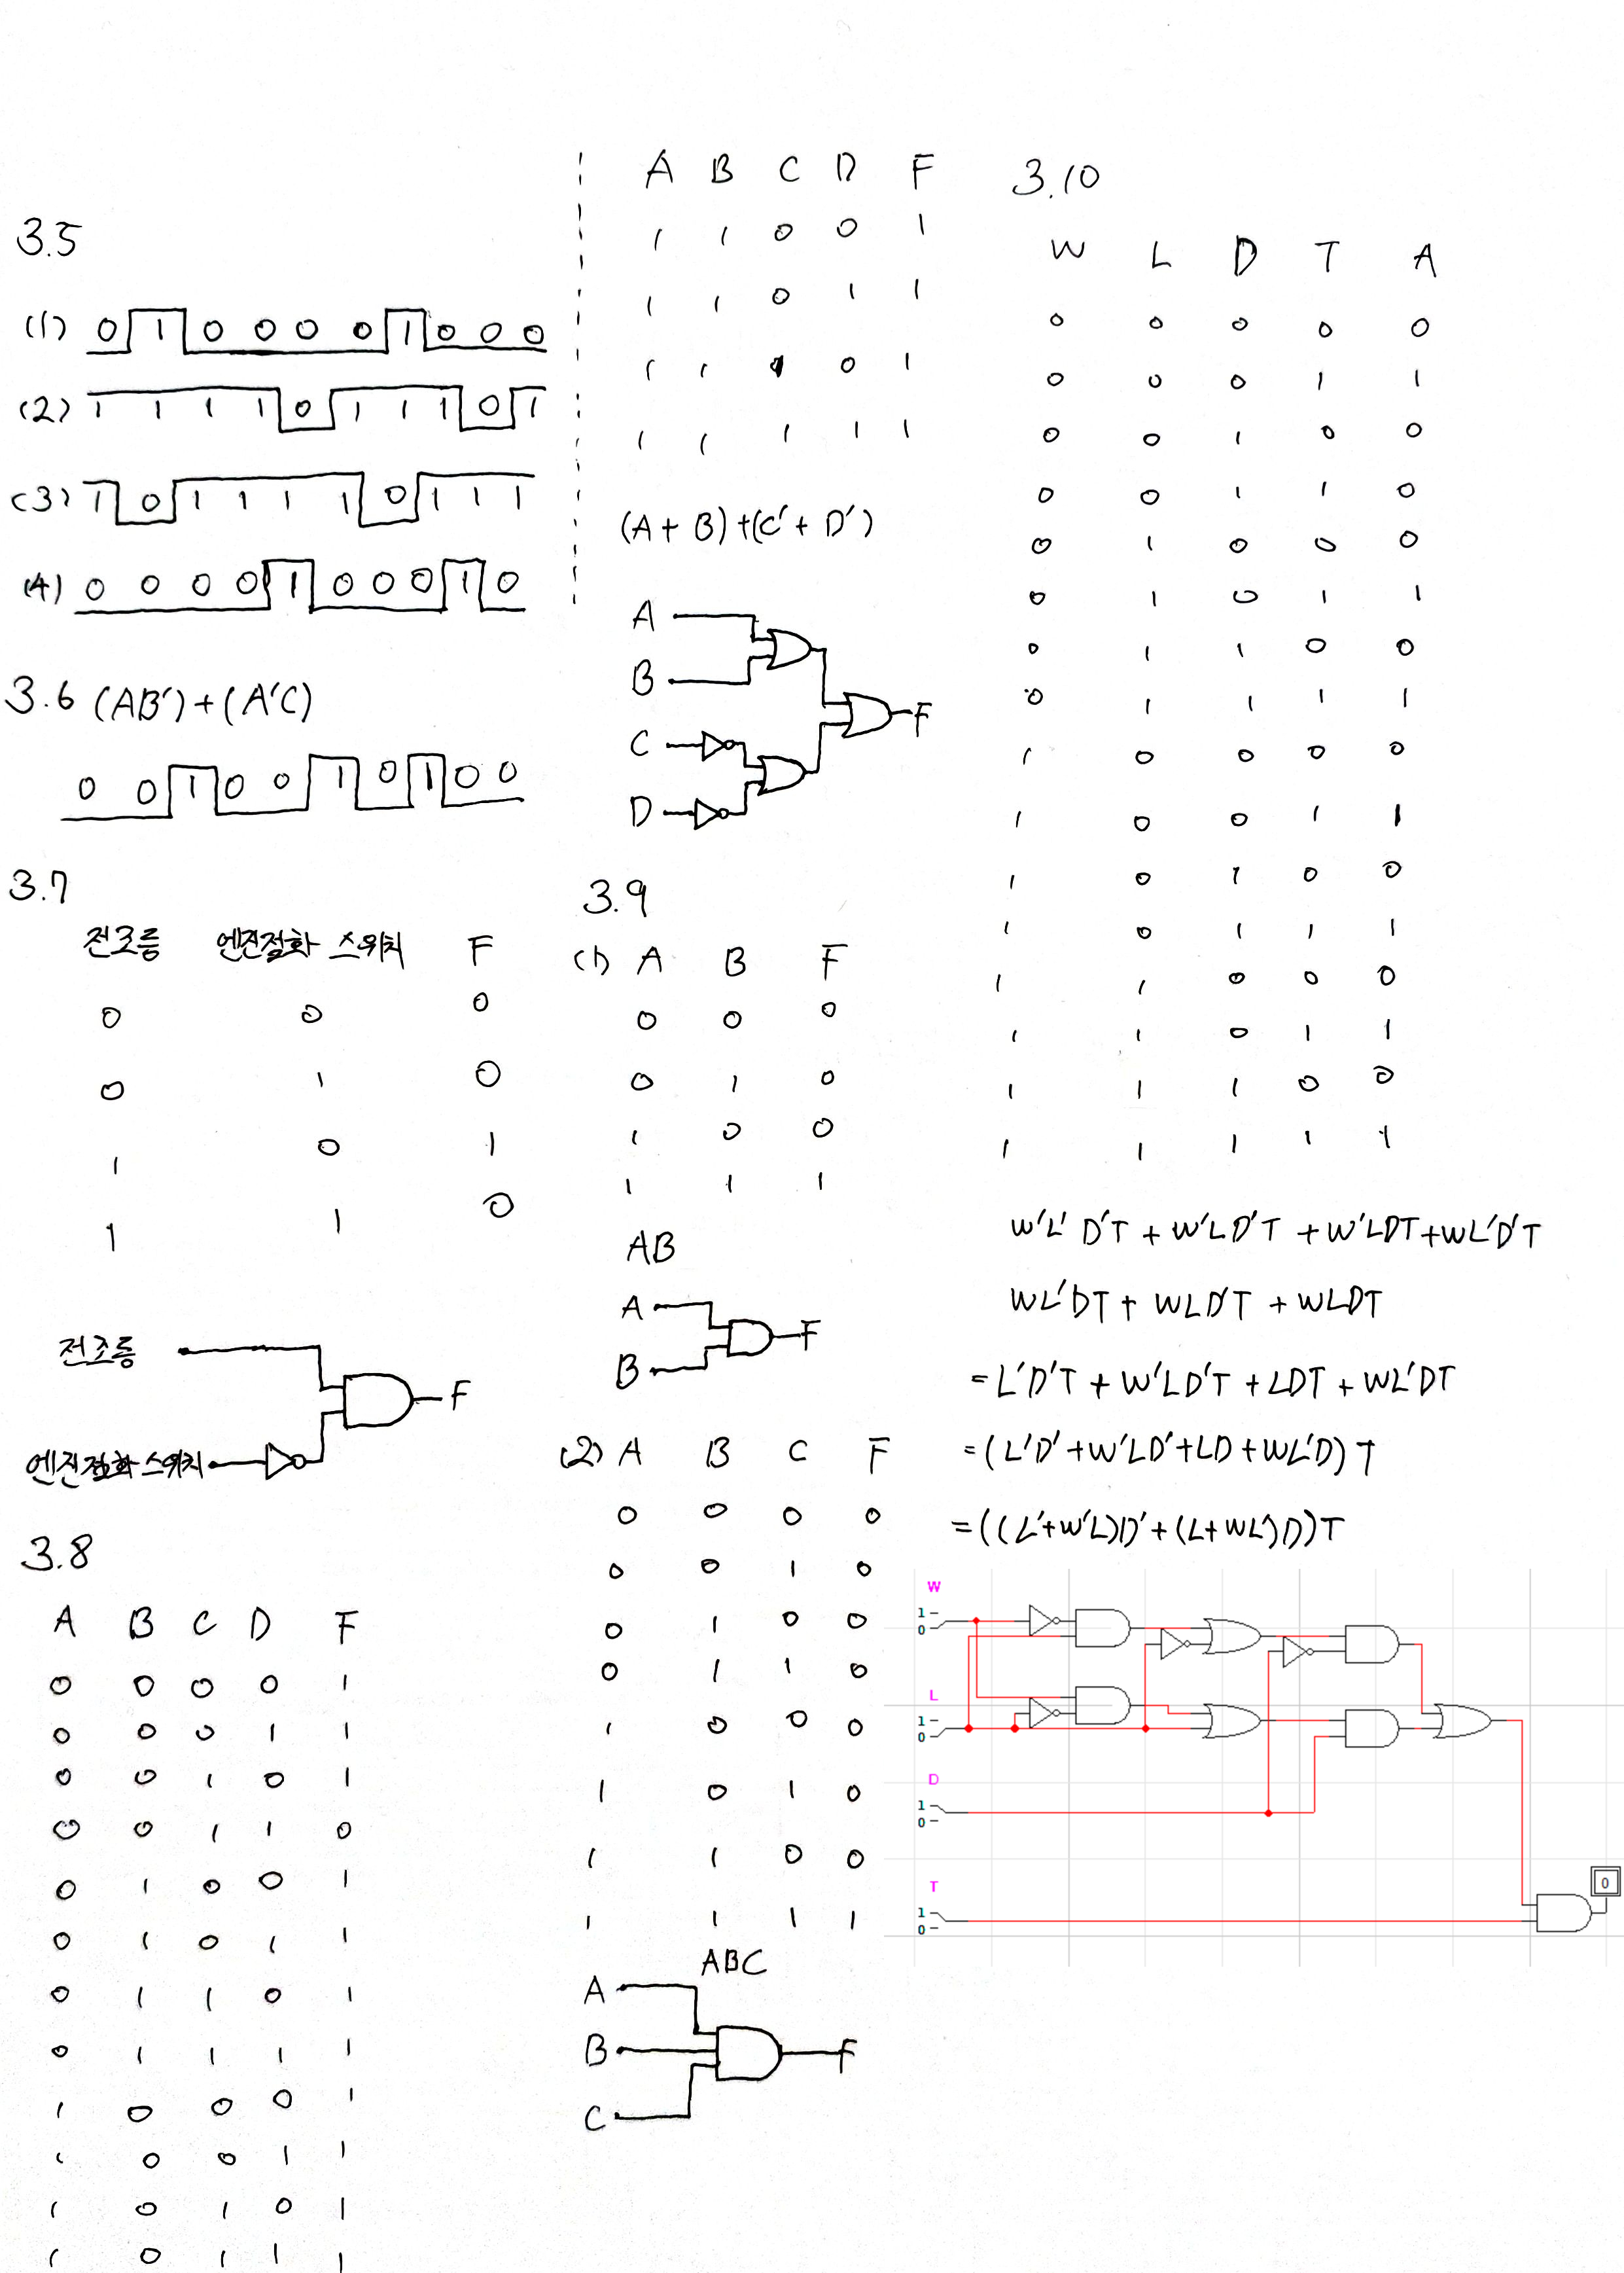 3.5
(1) 0 1 0 0 0 0 1 0 0 0
(2) 1 1 1 1 0 1 1 1 0 1
(3) 1 0 1 1 1 1 0 1 1 1
(4) 0 0 0 0 1 0 0 0 1 0
3.6 (AB')+(A'C)
0 0 1 0 0 1 0 1 0 0
3.7
전조등 엔진점화 스위치 F
0 0 0
0 1 0
1 0 1
1 1 0
전조등
F
엔진점화 스위치
3.8
A B C D F
0 0 0 0 1
0 0 0 1 1
0 0 1 0 1
0 0 1 1 0
0 1 0 0 1
0 1 0 1 1
0 1 1 0 1
0 1 1 1 1
1 0 0 0 1
1 0 0 1 1
1 0 1 0 1
1 0 1 1 1
A B C D F
1 1 0 0 1
1 1 0 1 1
1 1 1 0 1
1 1 1 1 1
(A+B)+(C'+D')
A
B
F
C
D
3.9
(1) A B F
0 0 0
0 1 0
1 0 0
1 1 1
AB
A
F
B
(2) A B C F
0 0 0 0
0 0 1 0
0 1 0 0
0 1 1 0
1 0 0 0
1 0 1 0
1 1 0 0
1 1 1 1
ABC
A
B
F
C
3.10
W L D T A
0 0 0 0 0
0 0 0 1 1
0 0 1 0 0
0 0 1 1 0
0 1 0 0 0
0 1 0 1 1
0 1 1 0 0
0 1 1 1 1
1 0 0 0 0
1 0 0 1 1
1 0 1 0 0
1 0 1 1 1
1 1 0 0 0
1 1 0 1 1
1 1 1 0 0
1 1 1 1 1
W'L'D'T + W'LD'T + W'LDT+WL'D'T
WL'DT + WLD'T + WLDT
=L'D'T + W'LD'T + LDT + WL'DT
=(L'D'+W'LD'+LD+WL'D)T
=((L'+W'L)D'+(L+WL')D)T
W
1
0
L
1
0
D
1
0
T
1
0
0